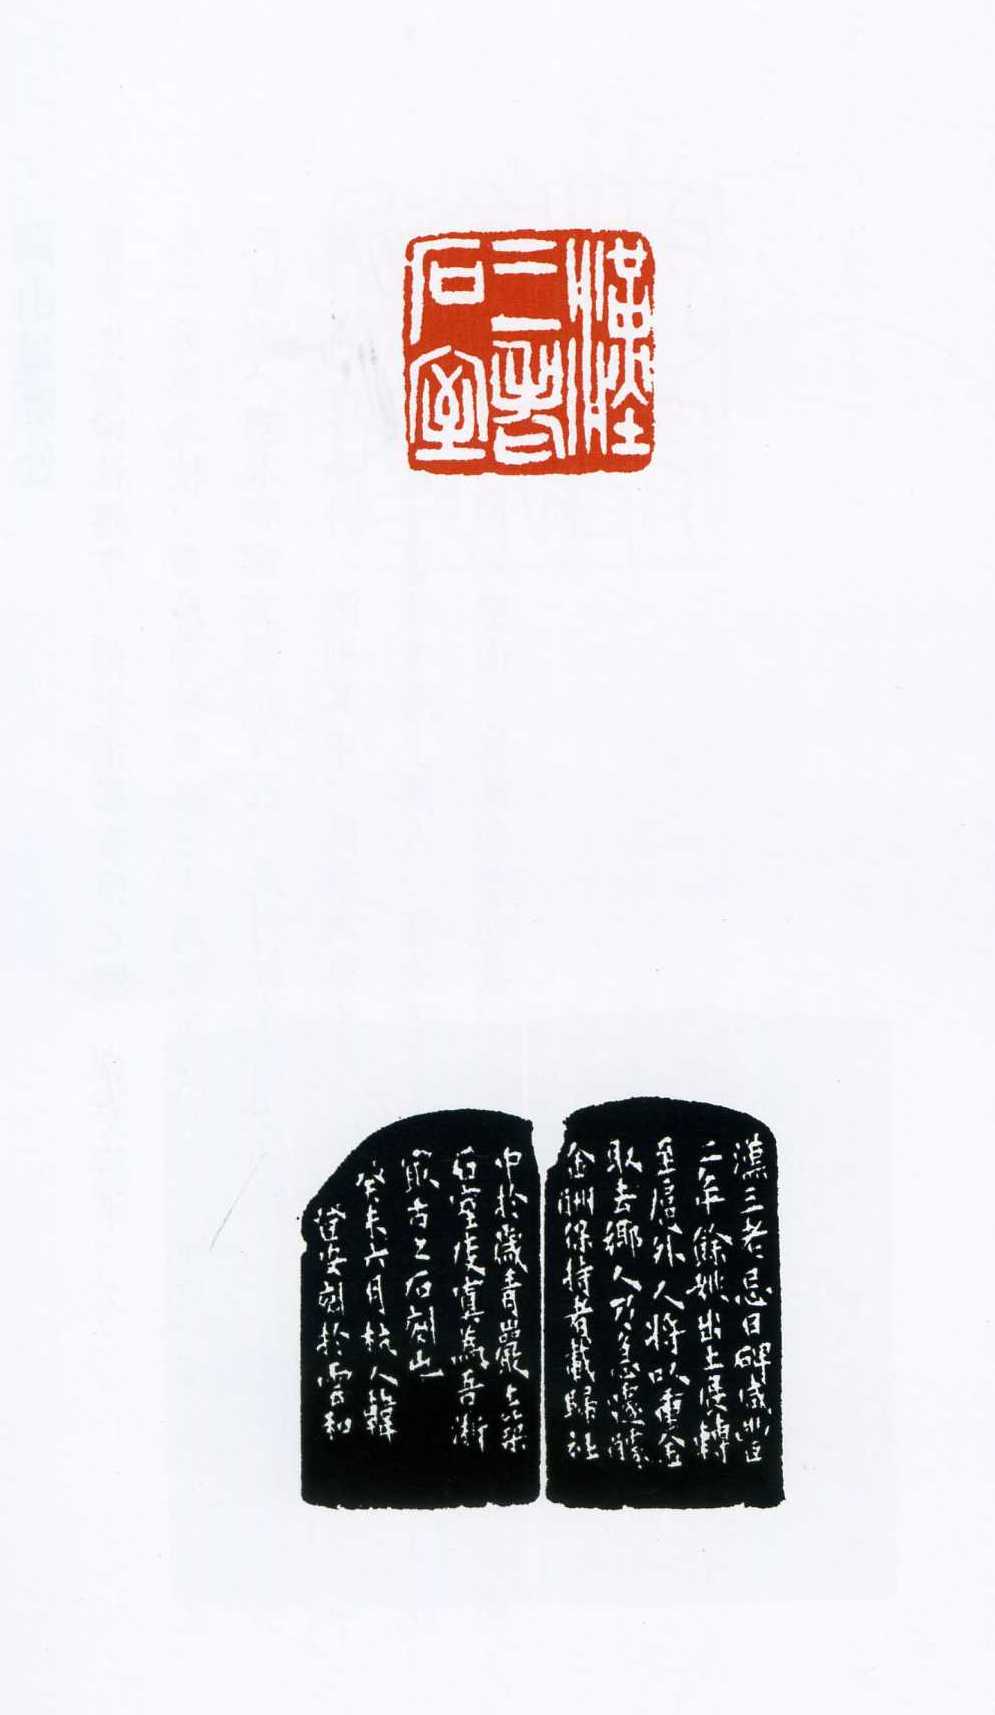 漢
三老
石室
漢三老忌日碑咸豐
二年餘姚出土展轉
至扈外人將以重金
取去鄉人乃急遽醵
金酬保持者載歸社
中於歲青巖上築
石室庋寘為吾浙
最古之石刻也
癸未六月杭人韓
登安刻於雲和